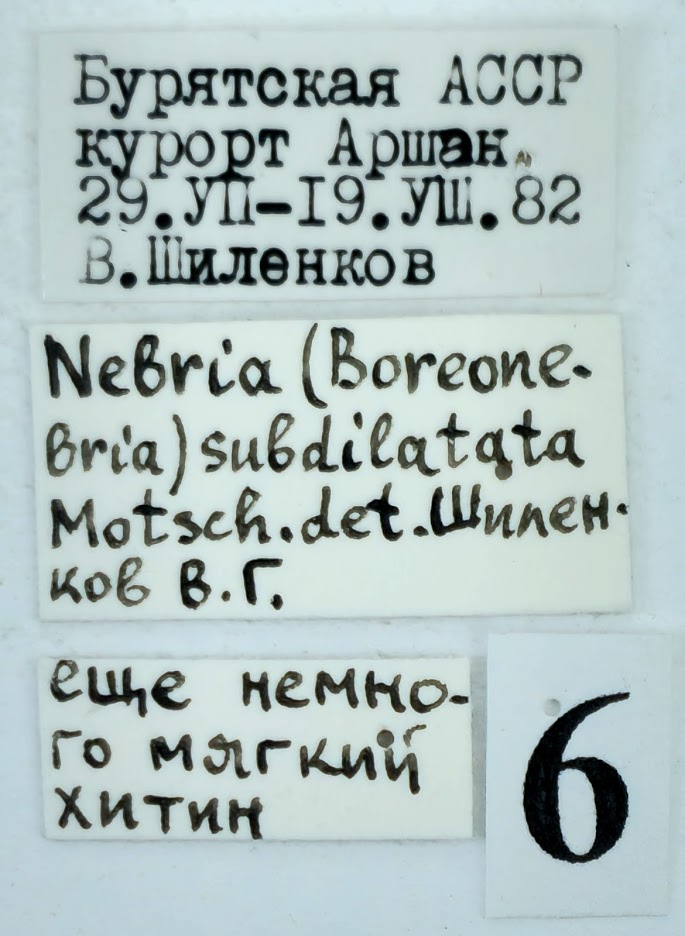 Бурятская АССР
курорт Аршан.
29.УП-I9.УШ.82
В.Шиленков
Nebria (Boreone-
bria) subdilatata
Motsch. det. Шилен-
ков В.Г.
еще немно-
го мягкий
хитин
6